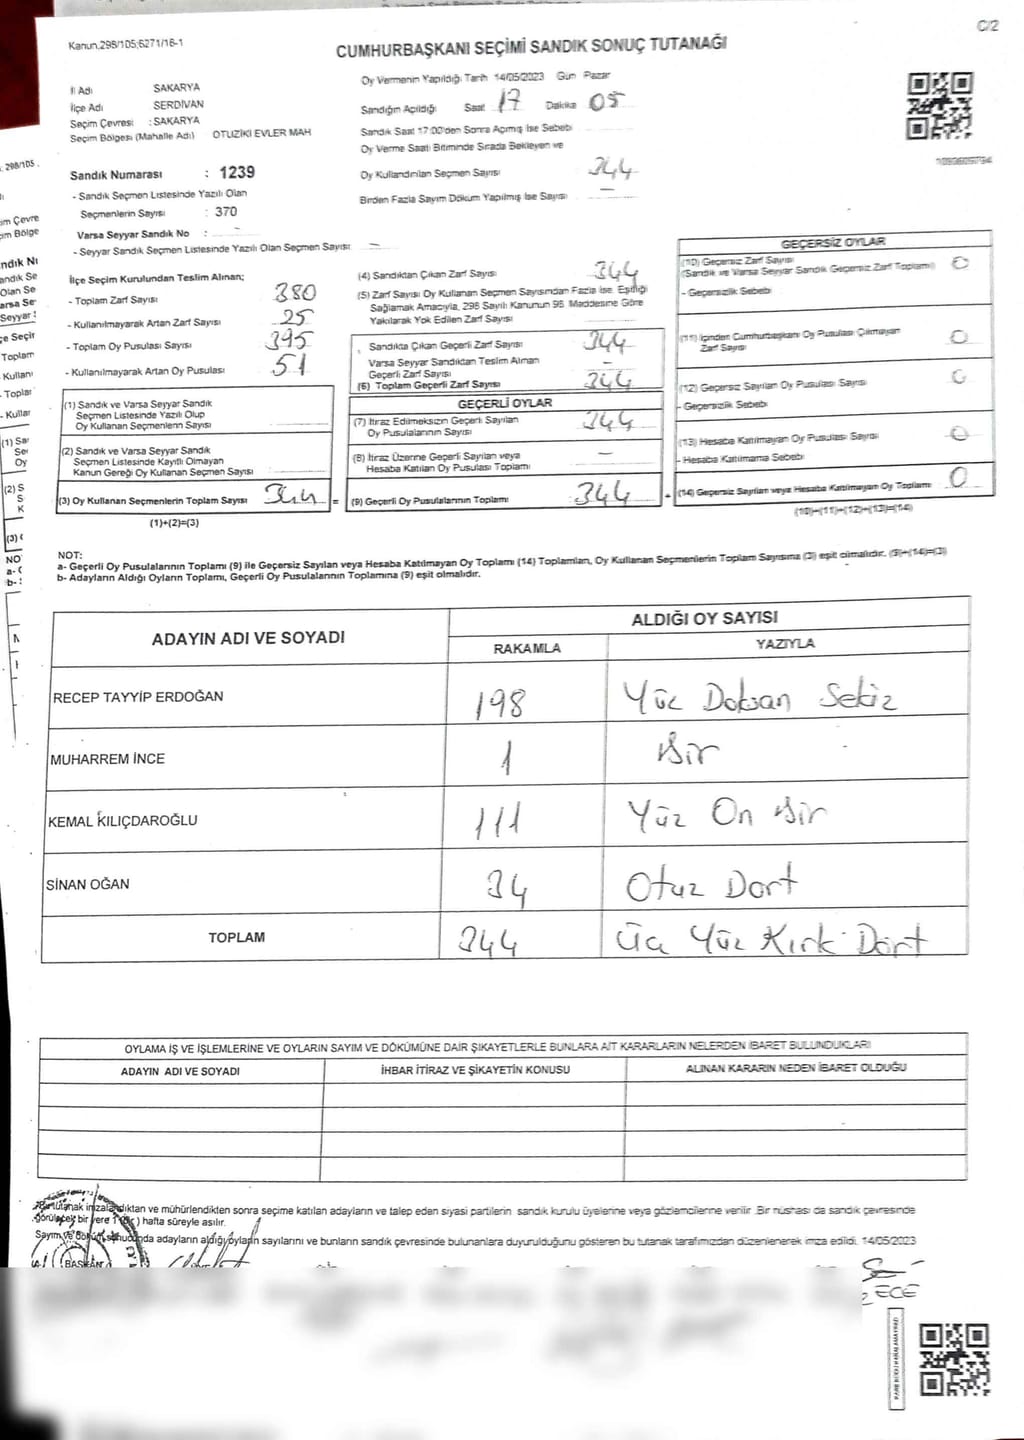 C/2
Kanun,298/105;6271/16-1
CUMHURBAŞKANI SEÇİMİ SANDIK SONUÇ TUTANAĞI
İl Adı SAKARYA
İlçe Adı SERDİVAN
Seçim Çevresi : SAKARYA
Seçim Bölgesi (Mahalle Adı) OTUZİKİ EVLER MAH
Oy Vermenin Yapıldığı Tarih 14/05/2023 Gün Pazar
Sandığın Açıldığı Saat 17 Dakika 05
Sandık Saat 17:00'den Sonra Açımış İse Sebebi
Oy Verme Saati Bitiminde Sırada Bekleyen ve
Oy Kullandırılan Seçmen Sayısı 344
Birden Fazla Sayım Döküm Yapılmış İse Sayısı —
Sandık Numarası : 1239
- Sandık Seçmen Listesinde Yazılı Olan
Seçmenlerin Sayısı : 370
Varsa Seyyar Sandık No : —
- Seyyar Sandık Seçmen Listesinde Yazılı Olan Seçmen Sayısı: —
İlçe Seçim Kurulundan Teslim Alınan;
- Toplam Zarf Sayısı 380
- Kullanılmayarak Artan Zarf Sayısı 25
- Toplam Oy Pusulası Sayısı 395
- Kullanılmayarak Artan Oy Pusulası 51
(1) Sandık ve Varsa Seyyar Sandık
Seçmen Listesinde Yazılı Olup
Oy Kullanan Seçmenlerin Sayısı
(2) Sandık ve Varsa Seyyar Sandık
Seçmen Listesinde Kayıtlı Olmayan
Kanun Gereği Oy Kullanan Seçmen Sayısı
(3) Oy Kullanan Seçmenlerin Toplam Sayısı 344 =
(1)+(2)=(3)
(4) Sandıktan Çıkan Zarf Sayısı 344
(5) Zarf Sayısı Oy Kullanan Seçmen Sayısından Fazla ise, Eşitliği
Sağlamak Amacıyla, 298 Sayılı Kanunun 95. Maddesine Göre
Yakılarak Yok Edilen Zarf Sayısı
Sandıkta Çıkan Geçerli Zarf Sayısı 344
Varsa Seyyar Sandıktan Teslim Alınan
Geçerli Zarf Sayısı —
(6) Toplam Geçerli Zarf Sayısı 344
GEÇERLİ OYLAR
(7) İtiraz Edilmeksizin Geçerli Sayılan
Oy Pusulalarının Sayısı 344
(8) İtiraz Üzerine Geçerli Sayılan veya
Hesaba Katılan Oy Pusulası Toplamı —
(9) Geçerli Oy Pusulalarının Toplamı 344 +
GEÇERSİZ OYLAR
(10) Geçersiz Zarf Sayısı 0
(Sandık ve Varsa Seyyar Sandık Geçersiz Zarf Toplamı)
- Geçersizlik Sebebi
(11) İçinden Cumhurbaşkanı Oy Pusulası Çıkmayan
Zarf Sayısı 0
(12) Geçersiz Sayılan Oy Pusulası Sayısı 0
- Geçersizlik Sebebi
(13) Hesaba Katılmayan Oy Pusulası Sayısı 0
- Hesaba Katılmama Sebebi
(14) Geçersiz Sayılan veya Hesaba Katılmayan Oy Toplamı 0
(10)+(11)+(12)+(13)=(14)
NOT:
a- Geçerli Oy Pusulalarının Toplamı (9) ile Geçersiz Sayılan veya Hesaba Katılmayan Oy Toplamı (14) Toplamları, Oy Kullanan Seçmenlerin Toplam Sayısına (3) eşit olmalıdır. (9)+(14)=(3)
b- Adayların Aldığı Oyların Toplamı, Geçerli Oy Pusulalarının Toplamına (9) eşit olmalıdır.
ADAYIN ADI VE SOYADI
ALDIĞI OY SAYISI
RAKAMLA YAZIYLA
RECEP TAYYİP ERDOĞAN 198 Yüz Doksan Sekiz
MUHARREM İNCE 1 Bir
KEMAL KILIÇDAROĞLU 111 Yüz On Bir
SİNAN OĞAN 34 Otuz Dört
TOPLAM 344 Üç Yüz Kırk Dört
OYLAMA İŞ VE İŞLEMLERİNE VE OYLARIN SAYIM VE DÖKÜMÜNE DAİR ŞİKAYETLERLE BUNLARA AİT KARARLARIN NELERDEN İBARET BULUNDUKLARI
ADAYIN ADI VE SOYADI İHBAR İTİRAZ VE ŞİKAYETİN KONUSU ALINAN KARARIN NEDEN İBARET OLDUĞU
imzalandıktan ve mühürlendikten sonra seçime katılan adayların ve talep eden siyasi partilerin sandık kurulu üyelerine veya gözlemcilerine verilir. Bir nüshası da sandık çevresinde
görülecek bir yere 1 (bir) hafta süreyle asılır.
Sayım ve döküm sonucunda adayların aldığı oyların sayılarını ve bunların sandık çevresinde bulunanlara duyurulduğunu gösteren bu tutanak tarafımızdan düzenlenerek imza edildi. 14/05/2023
BAŞKAN
ECE